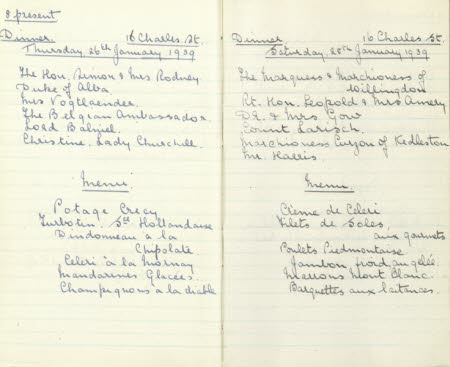 8 present
Dinner. 16 Charles St.
Thursday 26th January 1939
The Hon. Simon & Mrs Rodney.
Duke of Alba.
Mrs Vogtlaender.
The Belgian Ambassador.
Lord Balniel.
Christine, Lady Churchill.
Menu
Potage Crecy
Turbotin, Sce Hollandaise
Dindonneau à la
Chipolate
Celeri à la Mornay
Mandarines Glacées.
Champignons à la diable
Dinner 16 Charles St.
Saturday, 28th January 1939
The Marquess & Marchioness of
Willingdon
Rt. Hon. Leopold & Mrs Amery
Dr. & Mrs Gow
Count Larisch.
Marchioness Curzon of Kedleston
Mr. Harris.
Menu.
Crème de Celeri
Filets de Soles,
aux
Poulets Piedmontaise
Jambon froid en gelée.
Marrons Mont Blanc.
Barquettes aux laitances.